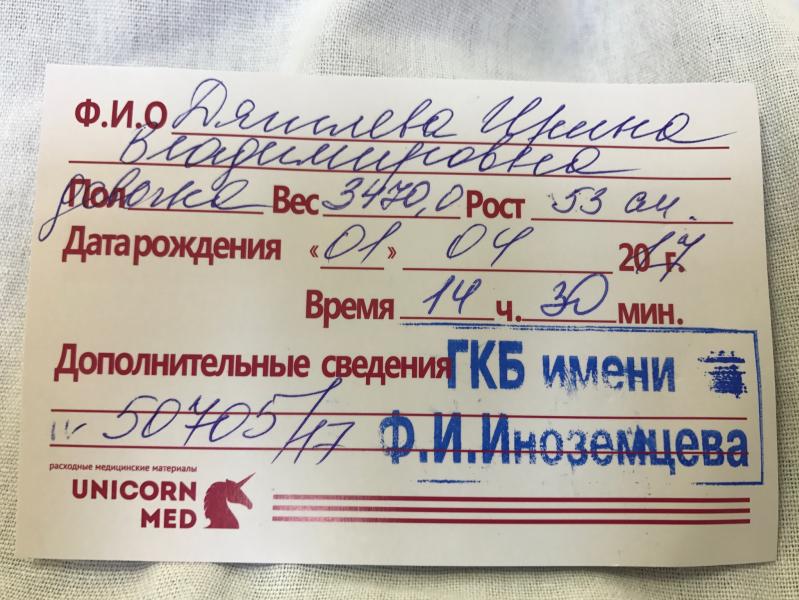 Ф.И.О Дятлева Ирина
Владимировна
Пол девочка Вес 3470,0 Рост 53 см.
Дата рождения «01» 04 2017 г.
Время 14 ч. 30 мин.
Дополнительные сведения
ГКБ имени
№ 50705/17
Ф.И.Иноземцева
расходные медицинские материалы
UNICORN
MED